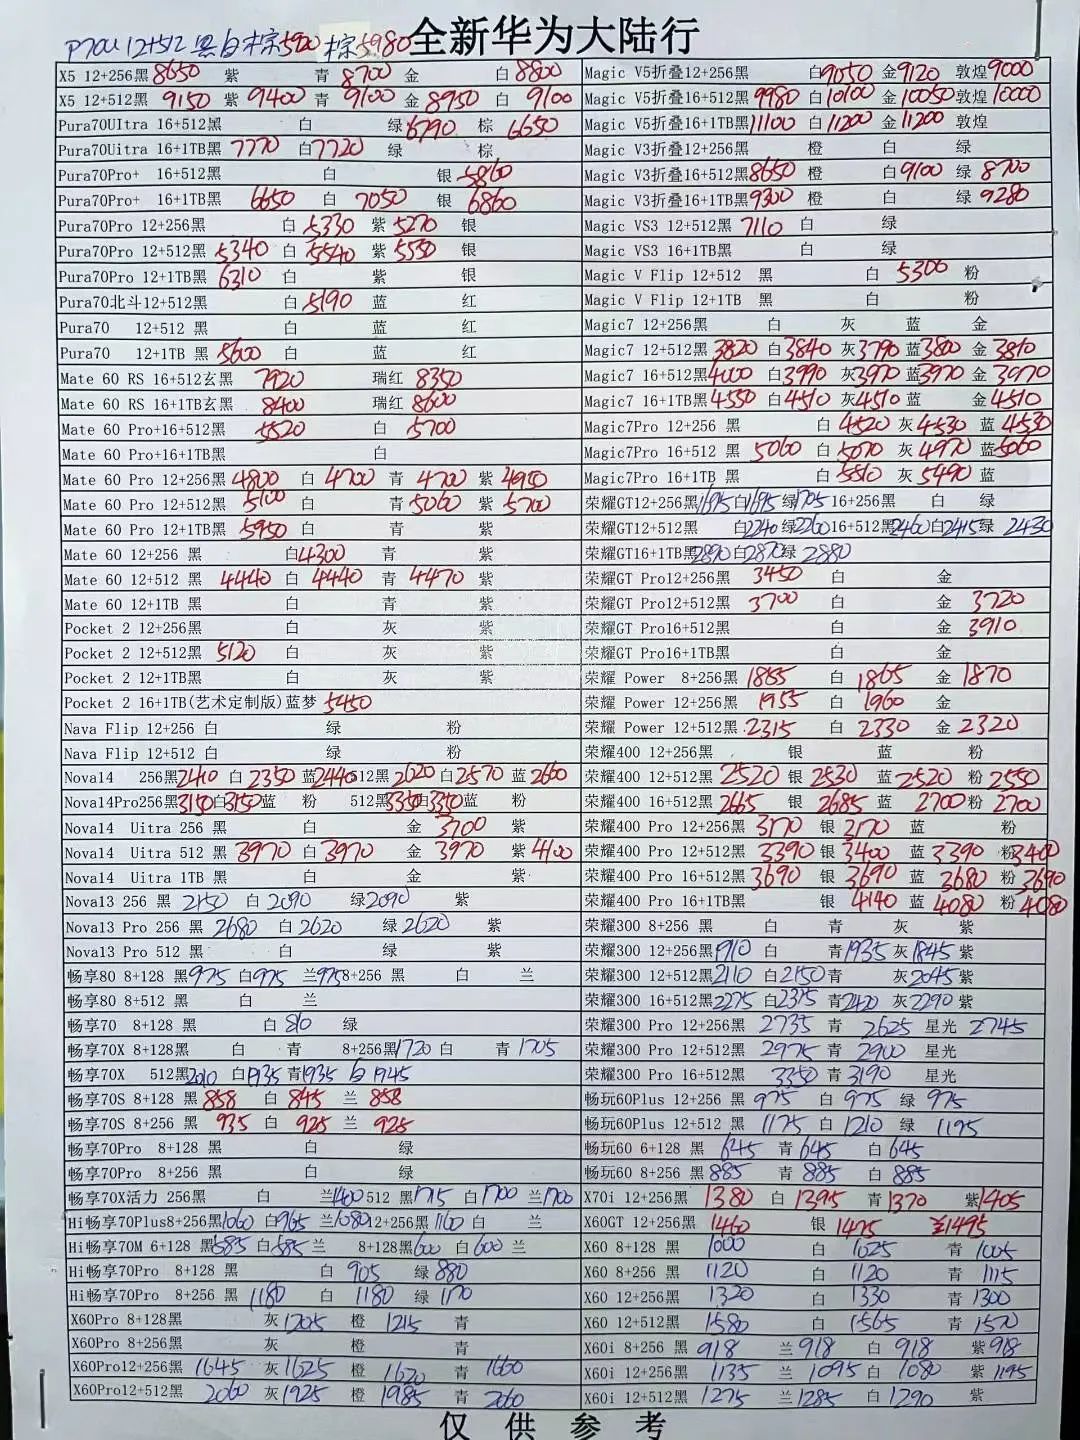 P70U 12+512 黑白棕5920 棕5980
全新华为大陆行
X5 12+256黑 8650 紫 青 8700 金 白 8800
X5 12+512黑 9150 紫 9400 青 9100 金 8950 白 9100
Pura70UItra 16+512黑 白 绿 6790 棕 6650
Pura70Uitra 16+1TB黑 7770 白 7720 绿 棕
Pura70Pro+ 16+512黑 白 银 5860
Pura70Pro+ 16+1TB黑 6650 白 7050 银 6860
Pura70Pro 12+256黑 白 5330 紫 5270 银
Pura70Pro 12+512黑 5340 白 5540 紫 5550 银
Pura70Pro 12+1TB黑 6310 白 紫 银
Pura70北斗12+512黑 白 5190 蓝 红
Pura70 12+512 黑 白 蓝 红
Pura70 12+1TB 黑 5600 白 蓝 红
Mate 60 RS 16+512玄黑 7920 瑞红 8350
Mate 60 RS 16+1TB玄黑 8400 瑞红 8600
Mate 60 Pro+16+512黑 5520 白 5700
Mate 60 Pro+16+1TB黑 白
Mate 60 Pro 12+256黑 4800 白 4700 青 4700 紫 4950
Mate 60 Pro 12+512黑 5100 白 青 5060 紫 5700
Mate 60 Pro 12+1TB黑 5950 白 青 紫
Mate 60 12+256 黑 白 4300 青 紫
Mate 60 12+512 黑 4440 白 4440 青 4470 紫
Mate 60 12+1TB 黑 白 青 紫
Pocket 2 12+256黑 白 灰 紫
Pocket 2 12+512黑 5120 白 灰 紫
Pocket 2 12+1TB黑 白 灰 紫
Pocket 2 16+1TB(艺术定制版)蓝梦 5450
Nava Flip 12+256 白 绿 粉
Nava Flip 12+512 白 绿 粉
Nova14 256黑 2410 白 2350 蓝 2440 512黑 2620 白 2570 蓝 2660
Nova14Pro256黑 3150 白 3150 蓝 粉 512黑 3350 白 3350 蓝 粉
Nova14 Uitra 256 黑 白 金 3700 紫
Nova14 Uitra 512 黑 3970 白 3970 金 3970 紫 4100
Nova14 Uitra 1TB 黑 白 金 紫
Nova13 256 黑 2150 白 2090 绿 2090 紫
Nova13 Pro 256 黑 2680 白 2620 绿 2620 紫
Nova13 Pro 512 黑 白 绿 紫
畅享80 8+128 黑 975 白 975 兰 975 8+256 黑 白 兰
畅享80 8+512 黑 白 兰
畅享70 8+128 黑 白 810 绿
畅享70X 8+128黑 白 青 8+256黑 1720 白 青 1705
畅享70X 512黑 2010 白 1935 青 1935 白 1945
畅享70S 8+128 黑 858 白 845 兰 858
畅享70S 8+256 黑 935 白 925 兰 925
畅享70Pro 8+128 黑 白 绿
畅享70Pro 8+256 黑 白 绿
畅享70X活力 256黑 白 兰 1400 512 黑 1715 白 1700 兰 1700
Hi畅享70Plus8+256黑 1060 白 965 兰 1080 12+256黑 1160 白 兰
Hi畅享70M 6+128 黑 585 白 585 兰 8+128黑 600 白 600 兰
Hi畅享70Pro 8+128 黑 白 905 绿 880
Hi畅享70Pro 8+256 黑 1180 白 1180 绿 1170
X60Pro 8+128黑 灰 1205 橙 1215 青
X60Pro 8+256黑 灰 橙 青
X60Pro12+256黑 1645 灰 1625 橙 1620 青 1660
X60Pro12+512黑 2060 灰 1925 橙 1985 青 2060
Magic V5折叠12+256黑 白 9050 金 9120 敦煌 9000
Magic V5折叠16+512黑 9980 白 10100 金 10050 敦煌 10000
Magic V5折叠16+1TB黑 11100 白 11200 金 11200 敦煌
Magic V3折叠12+256黑 橙 白 绿
Magic V3折叠16+512黑 8650 橙 白 9100 绿 8700
Magic V3折叠16+1TB黑 9300 橙 白 绿 9280
Magic VS3 12+512黑 7110 白 绿
Magic VS3 16+1TB黑 白 绿
Magic V Flip 12+512 黑 白 5300 粉
Magic V Flip 12+1TB 黑 白 粉
Magic7 12+256黑 白 灰 蓝 金
Magic7 12+512黑 3820 白 3840 灰 3790 蓝 3800 金 3810
Magic7 16+512黑 4000 白 3990 灰 3970 蓝 3970 金 3970
Magic7 16+1TB黑 4550 白 4510 灰 4510 蓝 金 4510
Magic7Pro 12+256 黑 白 4520 灰 4530 蓝 4530
Magic7Pro 16+512 黑 5060 白 5070 灰 4970 蓝 5060
Magic7Pro 16+1TB 黑 白 5510 灰 5490 蓝
荣耀GT12+256黑 1695 白 1695 绿 1705 16+256黑 白 绿
荣耀GT12+512黑 白 2240 绿 2260 16+512黑 2460 白 2415 绿 2430
荣耀GT16+1TB黑 2890 白 2870 绿 2880
荣耀GT Pro12+256黑 3450 白 金
荣耀GT Pro12+512黑 3700 白 金 3720
荣耀GT Pro16+512黑 白 金 3910
荣耀GT Pro16+1TB黑 白 金
荣耀 Power 8+256黑 1855 白 1865 金 1870
荣耀 Power 12+256黑 1955 白 1960 金
荣耀 Power 12+512黑 2315 白 2330 金 2320
荣耀400 12+256黑 银 蓝 粉
荣耀400 12+512黑 2520 银 2530 蓝 2520 粉 2550
荣耀400 16+512黑 2665 银 2685 蓝 2700 粉 2700
荣耀400 Pro 12+256黑 3170 银 3170 蓝 粉
荣耀400 Pro 12+512黑 3390 银 3400 蓝 3390 粉 3400
荣耀400 Pro 16+512黑 3690 银 3690 蓝 3680 粉 3690
荣耀400 Pro 16+1TB黑 银 4140 蓝 4080 粉 4080
荣耀300 8+256 黑 白 青 灰 紫
荣耀300 12+256黑 1910 白 青 1935 灰 1845 紫
荣耀300 12+512黑 2110 白 2150 青 灰 2045 紫
荣耀300 16+512黑 2275 白 2315 青 2420 灰 2290 紫
荣耀300 Pro 12+256黑 2735 青 2625 星光 2745
荣耀300 Pro 12+512黑 2975 青 2900 星光
荣耀300 Pro 16+512黑 3350 青 3190 星光
畅玩60Plus 12+256 黑 975 白 975 绿 975
畅玩60Plus 12+512 黑 1175 白 1210 绿 1195
畅玩60 6+128 黑 645 青 645 白 645
畅玩60 8+256 黑 885 青 885 白 885
X70i 12+256黑 1380 白 1395 青 1370 紫 1405
X60GT 12+256黑 1460 银 1475 1495
X60 8+128 黑 1000 白 1025 青 1005
X60 8+256 黑 1120 白 1120 青 1115
X60 12+256黑 1320 白 1330 青 1300
X60 12+512黑 1580 白 1565 青 1570
X60i 8+256 黑 918 兰 918 白 918 紫 918
X60i 12+256黑 1135 兰 1095 白 1080 紫 1195
X60i 12+512黑 1275 兰 1285 白 1290 紫
仅供参考